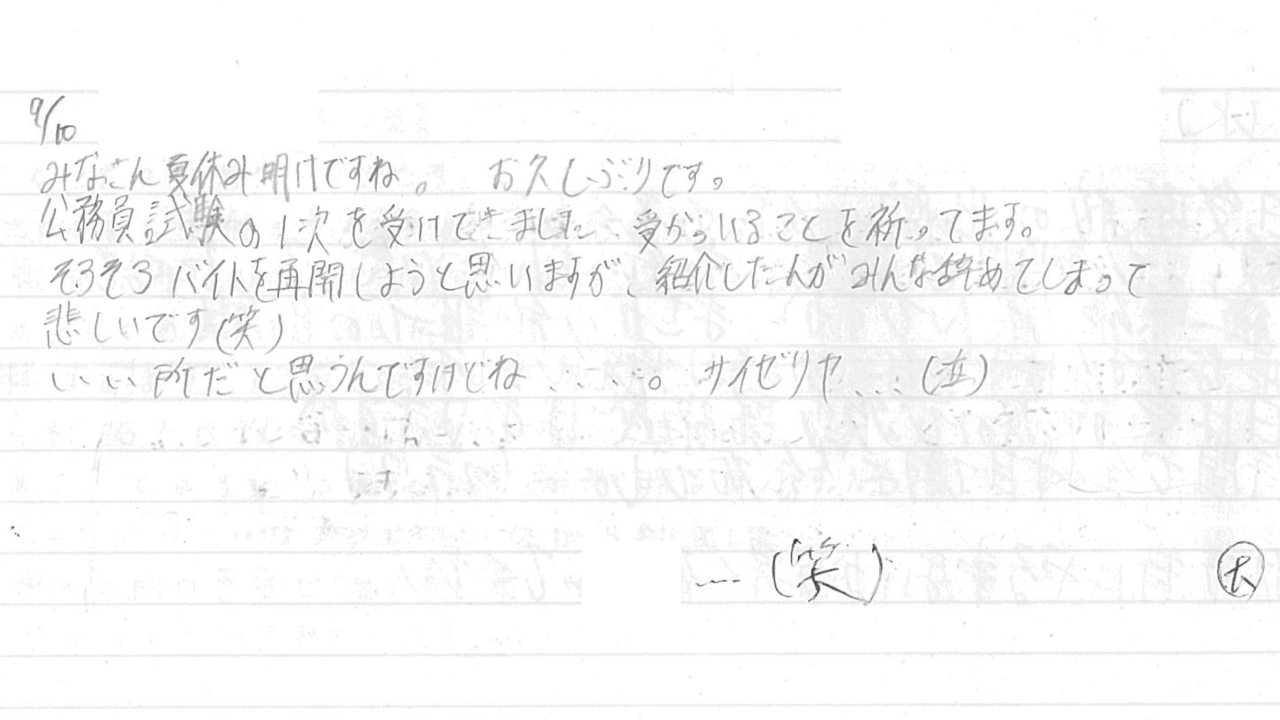 9/10
みなさん夏休み明けですね。 お久しぶりです。
公務員試験の1次を受けてきました 受かっいることを祈ってます。
そろそろバイトを再開しようと思いますが、紹介した人がみんな辞めてしまって
悲しいです(笑)
いい所だと思うんですけどね.....。 サイゼリヤ...(泣)
....(笑)